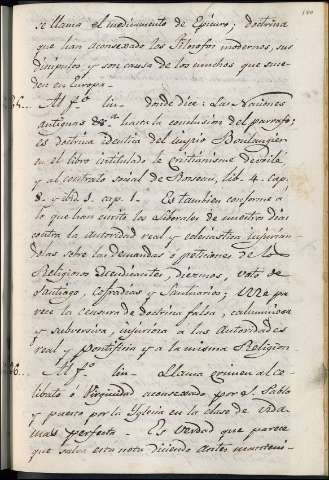 se llama el medicamento de Epicuro; doctrina
que han aconsexado los Filosofos modernos, sus
dicipulos y son causa de los muchos que suce-
den en Europa.
Al fº lin donde dice: Las Naciones
antiguas &ª hasta la conclusion del parrafo;
es doctrina identica del impio Boulangier
en el libro intitulado le cristianisme devoile,
y al contrato social de Roseau, lib. 4. cap.
8. y ibid 3. cap. 1. Es tambien conforme a
lo que han escrito los Liberales de nuestros dias
contra la autoridad real y eclesiastica injurian-
dolas sobre las demandas o peticiones de los
Religiosos Mendicantes, diezmos, voto de
Santiago, cofradias y Santuarios; me pa-
rece la censura de doctrina falsa, calumniosa
y subversiva, injuriosa a las Autoridades
real y pontificia y a la misma Religion
Al fº lin Llama crimen al ce-
libato ó Virginidad aconsexado por S. Pablo
y puesto por la Yglesia en la clase de vida
mas perfecta. Es verdad que parece
que salva esta nota diciendo antes